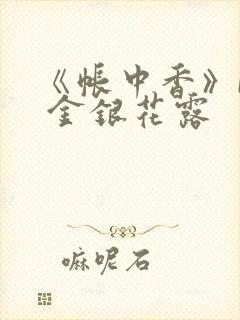 《帐中香》
金银花露
嘛呢石